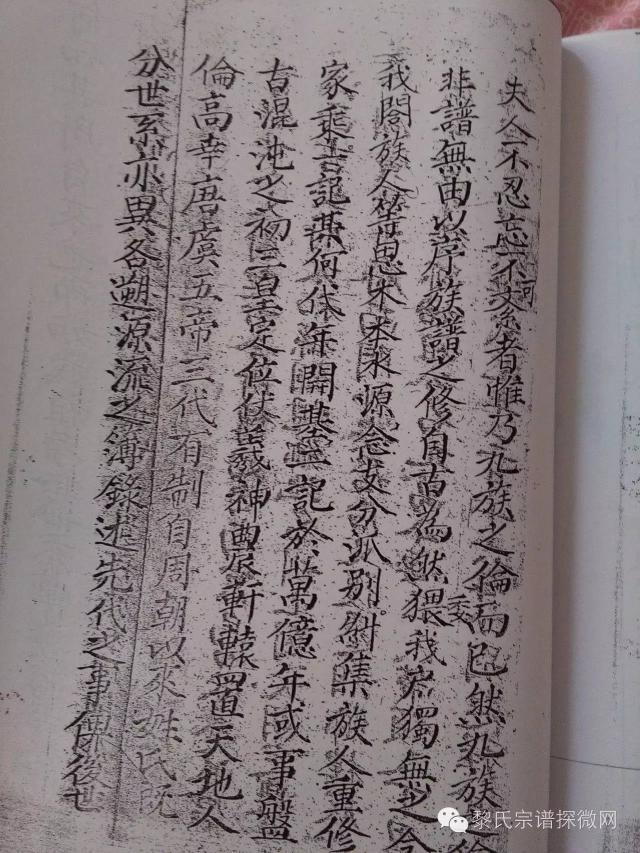 夫人不忍忘不可紊者唯乃九族之倫而已然九族之倫
非譜無由以序族譜之修自古為然猥我宗獨無之今
我閤族人等思木本水源念支分派別糾集族人重修
家乘書記某何代年開基一記於萬億年或事盤
古混沌之初三皇定位伏羲神農軒轅置天地人
倫高辛唐虞五帝三代有制自周朝以來姓氏既
分世系亦異各遡源流之簿錄述先代之事俾後世
黎氏宗谱探微网